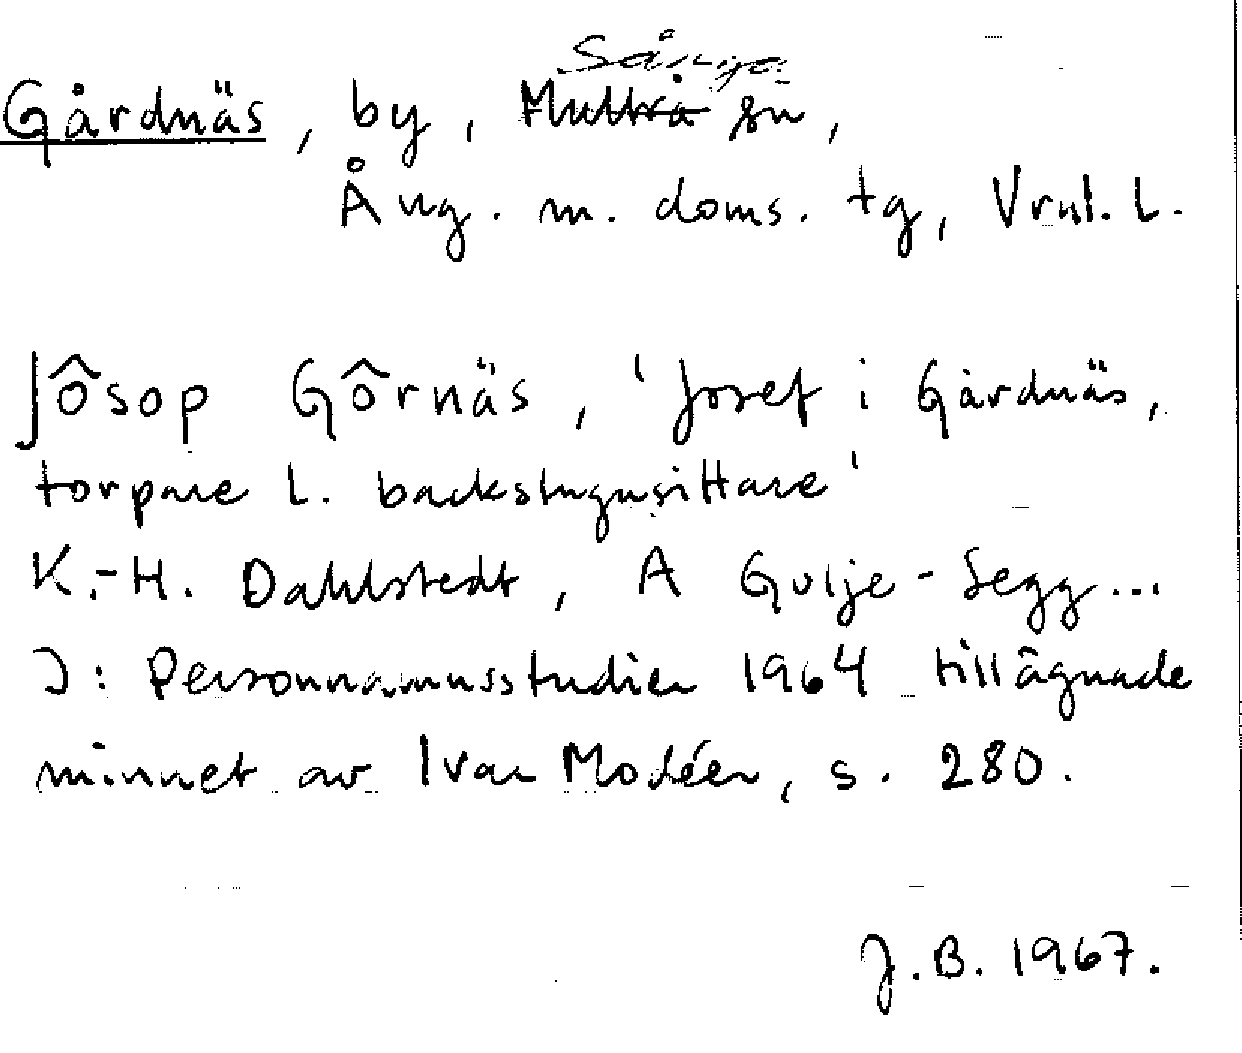 Sånga
Gårdnäs, by, Multrå sn,
Ång. m. doms. tg, Vrnl. L.
Jôsop Gôrnäs, 'Josef i Gårdnäs,
torpare l. backstugusittare'
K.-H. Dahlstedt, A Gulje-Segg...
I: Personnamnsstudier 1964 tillägnade
minnet av Ivar Modéer, s. 280.
J.B. 1967.